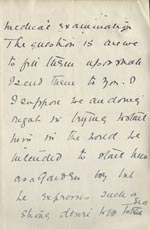 medical examination
The question is are we
to fill them up or shall
I send them to you. I
I suppose we are doing
right in trying to start
him in the world. he
intended to start him
as a Garden boy but
he expresses such a
strong desire